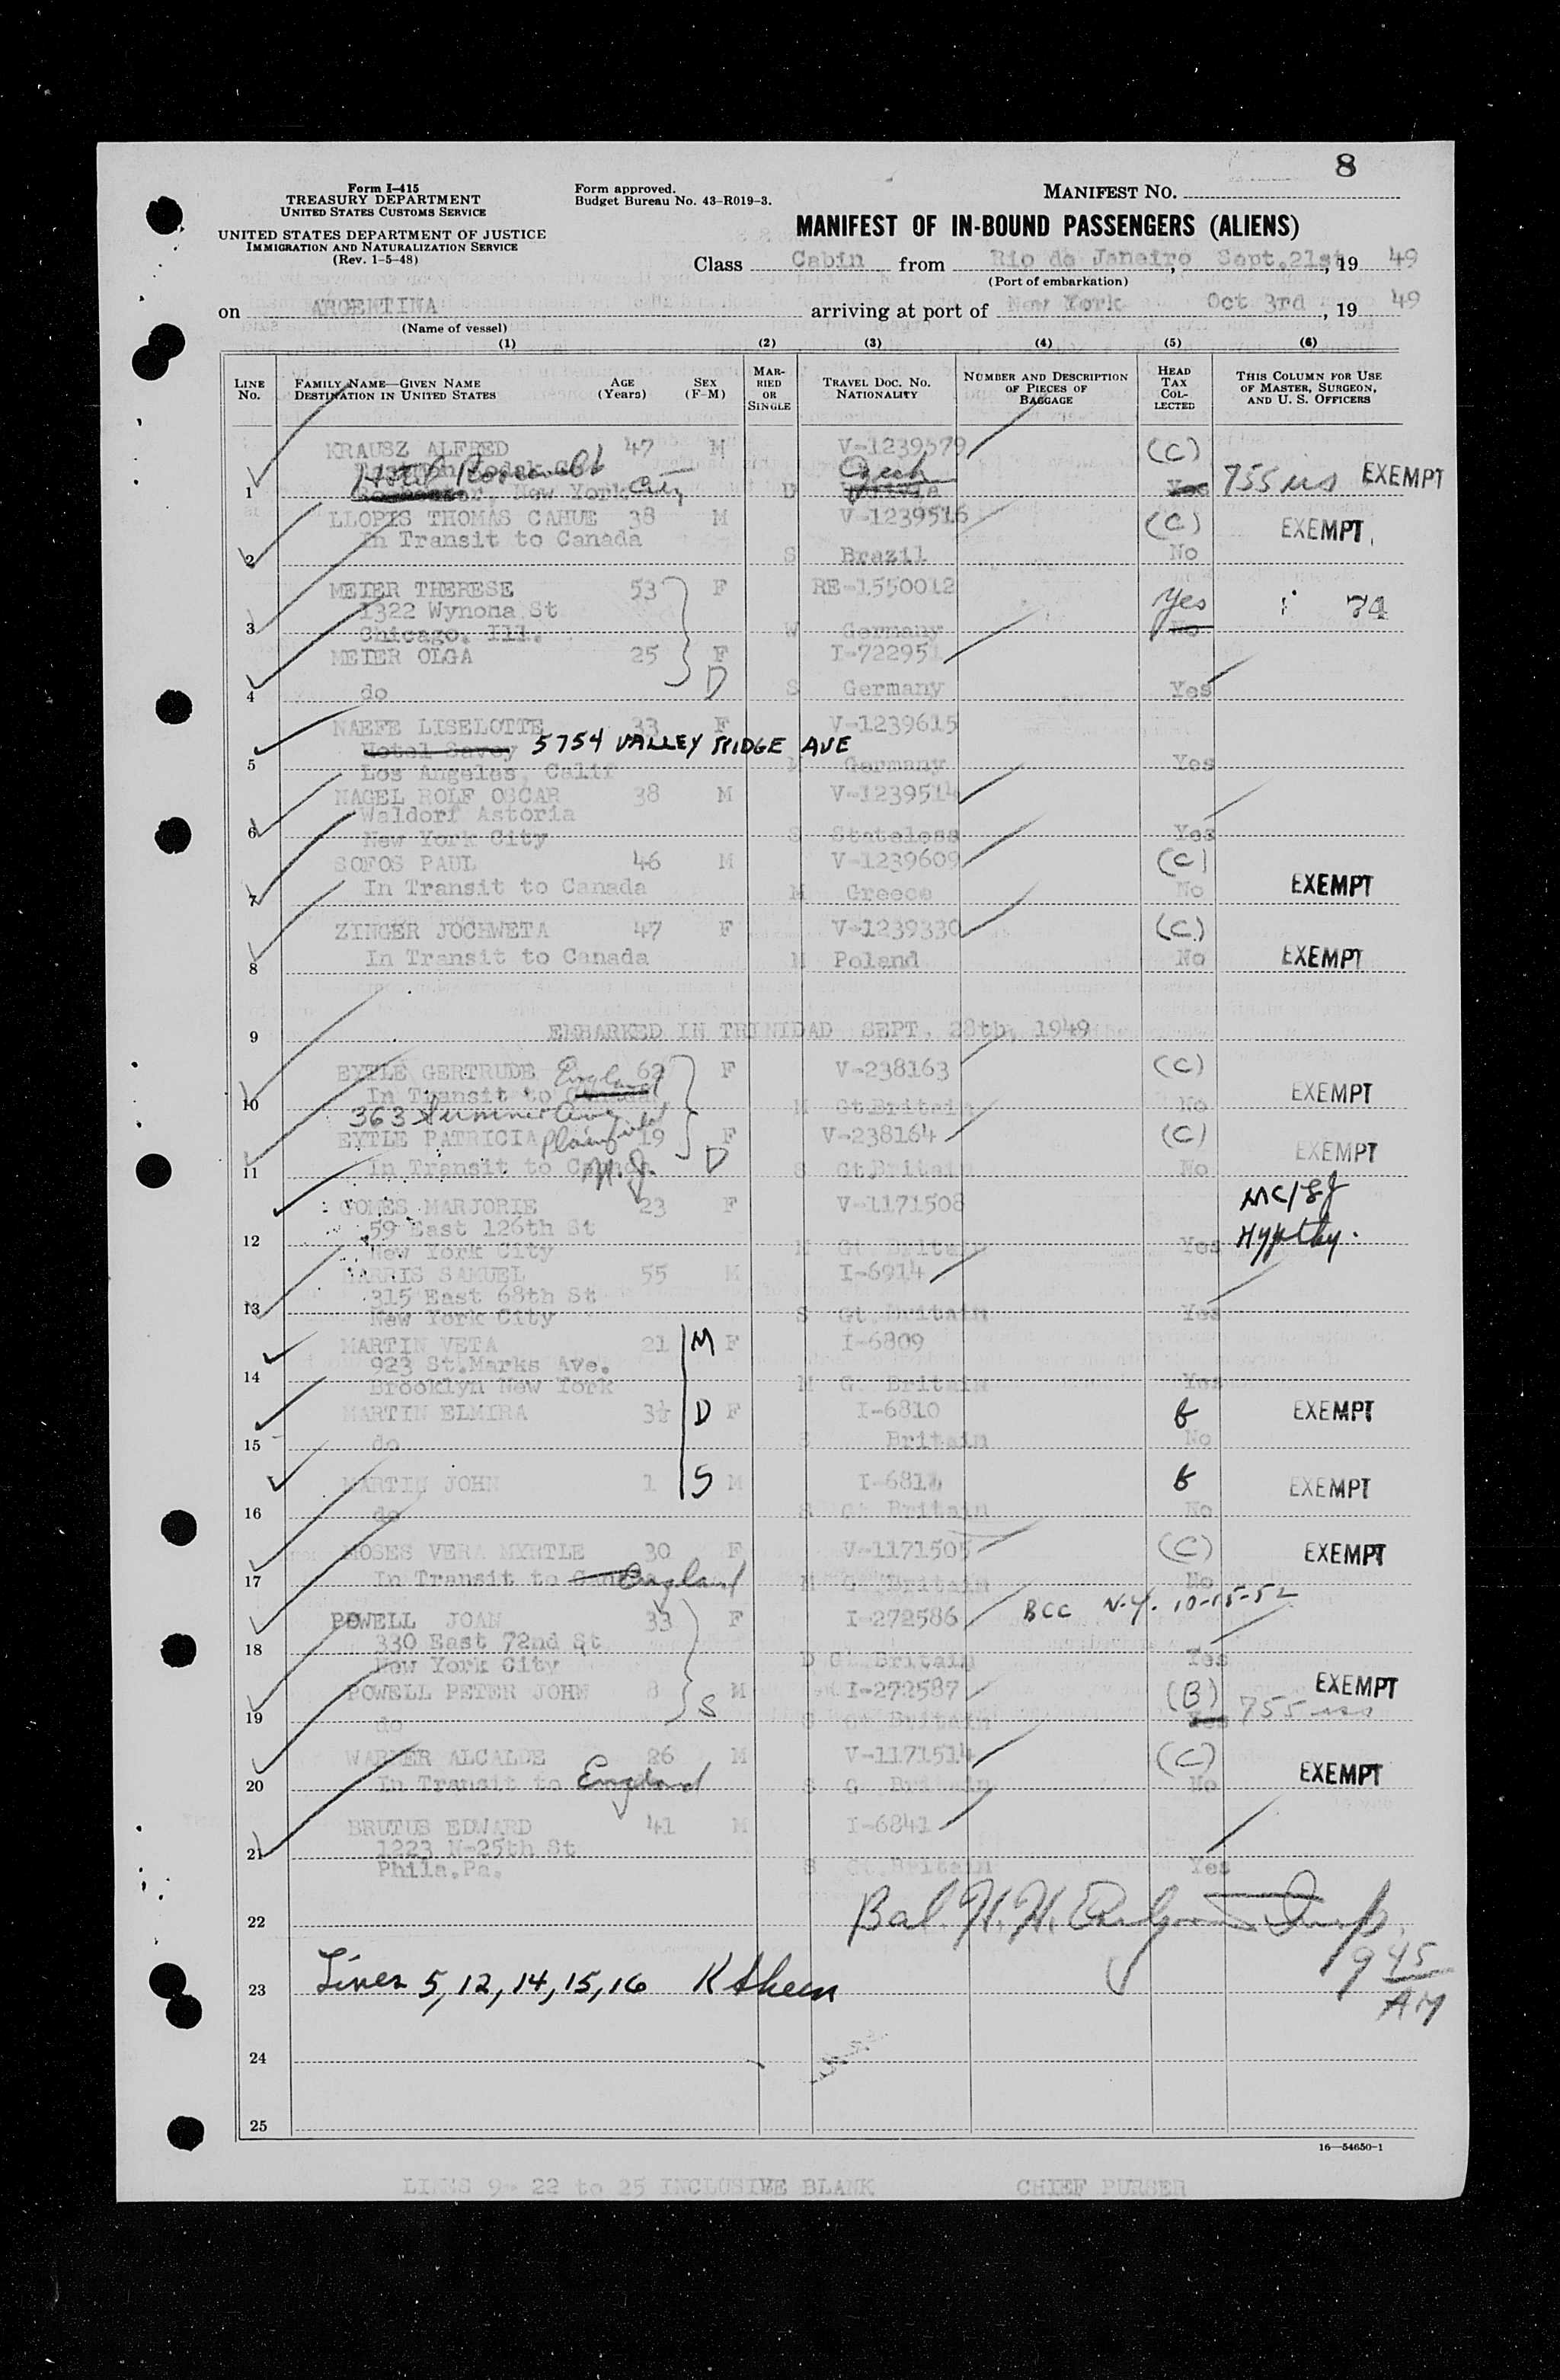 8
Form I-415
TREASURY DEPARTMENT
UNITED STATES CUSTOMS SERVICE
UNITED STATES DEPARTMENT OF JUSTICE
IMMIGRATION AND NATURALIZATION SERVICE
(Rev. 1-5-48)
Form approved.
Budget Bureau No. 43-R019-3.
MANIFEST NO.
MANIFEST OF IN-BOUND PASSENGERS (ALIENS)
Class Cabin from Rio de Janeiro, Sept.21st, 19 49
(Port of embarkation)
on ARGENTINA arriving at port of New York Oct 3rd, 19 49
(Name of vessel)
(1) (2) (3) (4) (5) (6)
LINE No. FAMILY NAME—GIVEN NAME DESTINATION IN UNITED STATES AGE (Years) SEX (F-M) MARRIED OR SINGLE TRAVEL DOC. NO. NATIONALITY NUMBER AND DESCRIPTION OF PIECES OF BAGGAGE HEAD TAX COLLECTED THIS COLUMN FOR USE OF MASTER, SURGEON, AND U. S. OFFICERS
KRAUSZ ALFRED 47 M V-1239579 (C)
Hotel Roosevelt Czech
1 New York City Yes 755 iss EXEMPT
LLOPIS THOMAS CAHUE 38 M V-1239516 (C) EXEMPT
In Transit to Canada
2 S Brazil No
MEIER THERESE 53 F RE-1550012
1322 Wynona St Yes 74
3 Chicago. Ill. W Germany No
MEIER OLGA 25 F I-722951
D
4 do S Germany Yes
NAEFE LISELOTTE 33 F V-1239615
Hotel Savoy 5754 VALLEY RIDGE AVE
5 Los Angeles, Calif Germany Yes
NAGEL ROLF OSCAR 38 M V-1239514
Waldorf Astoria
6 New York City S Stateless Yes
SOFOS PAUL 46 M V-1239609 (C)
7 In Transit to Canada M Greece No EXEMPT
ZINGER JOCHWETA 47 F V-1239330 (C)
8 In Transit to Canada M Poland No EXEMPT
9 EMBARKED IN TRINIDAD SEPT. 28th, 1949
EYTLE GERTRUDE 62 F V-238163 (C)
10 In Transit to Canada England M Gt.Britain No EXEMPT
363 Sumner Ave
EYTLE PATRICIA Plainfield 19 F V-238164 (C)
11 In Transit to Canada N.J. D S Gt.Britain No EXEMPT
GOMES MARJORIE 23 F V-1171508
59 East 126th St
12 New York City M Gt. Britain Yes
HARRIS SAMUEL 55 M I-6914
315 East 68th St
13 New York City S Gt. Britain Yes
MARTIN VETA 21 M F I-6809
923 St.Marks Ave.
14 Brooklyn New York M G. Britain Yes
MARTIN ELMIRA 3½ D F I-6810 EXEMPT
15 do S Britain No
MARTIN JOHN 1 S M I-6811 EXEMPT
16 do S G. Britain No
MOSES VERA MYRTLE 30 F V-1171505 (C) EXEMPT
17 In Transit to England M G. Britain No
POWELL JOAN 33 F I-272586 BCC N.Y. 10-15-52
18 330 East 72nd St
New York City D Gt. Britain Yes
POWELL PETER JOHN 8 M I-272587 (B) EXEMPT
S
19 do Gt. Britain Yes 755 iss
WARNER ALCALDE 26 M V-1171514 (C)
20 In Transit to England S G. Britain No EXEMPT
BRUTUS EDWARD 41 M I-6841
21 1223 N-25th St
Phila.Pa. S Gt. Britain Yes
22 Bal. H. H. Insp.
9 45 AM
23 Lines 5, 12, 14, 15, 16
24
25
16—54650-1
LINES 9- 22 to 25 INCLUSIVE BLANK CHIEF PURSER